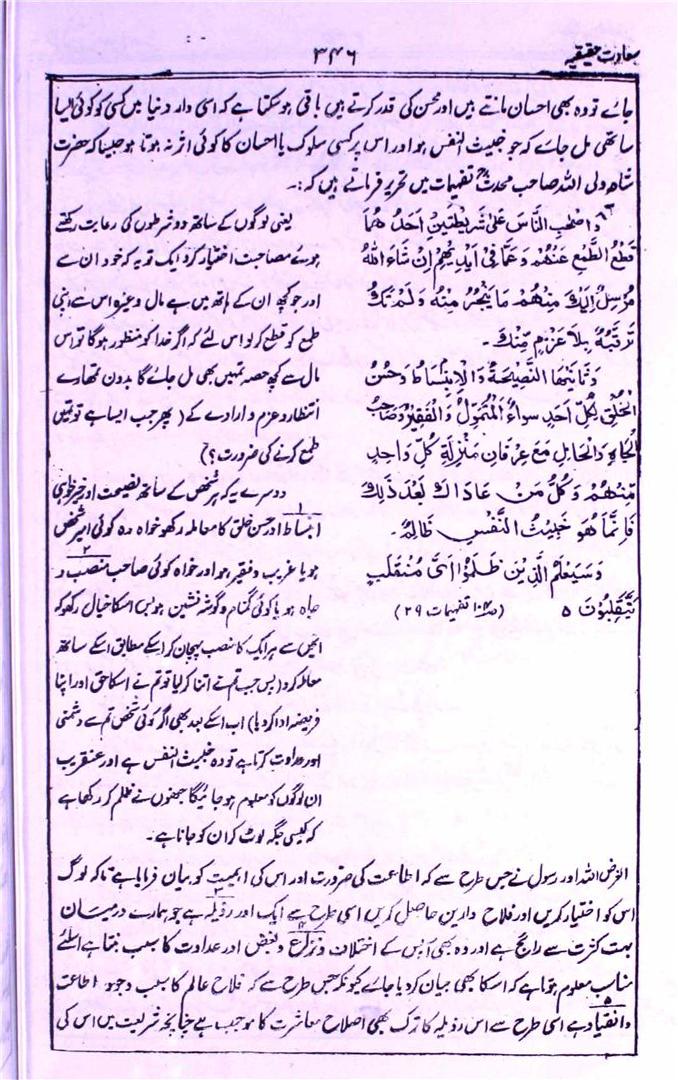 سعادت حقیقیہ
۳۴۶
جائے تو وہ بھی احسان مانتے ہیں اور محسن کی قدر کرتے ہیں باقی ہو سکتا ہے کہ اسی دار دنیا میں کسی کو کوئی ایسا
ساتھی مل جائے کہ جو خبیث النفس ہو اور اس پر کسی سلوک یا احسان کا کوئی اثر نہ ہوتا ہو جیسا کہ حضرت
شاہ ولی اللہ صاحب محدثؒ تفہیمات میں تحریر فرماتے ہیں کہ:۔
واصْحَبِ النَّاسَ عَلٰی شَرِیْطَتَیْنِ اَحَدُ هُمَا
قَطْعُ الطَّمْعِ عَنْهُمْ وَعَمَّا فِیْ اَیْدِیْهِمْ اِنْ شَاءَ اللهُ
مُرْسِلٌ اِلَیْكَ مِنْهُمْ مَا یَنْجَسُ مِنْهُ وَلَمْ تَكُ
تَرْقَبُهُ بِلَا عَزْمٍ مِّنْكَ۔
وَثَانِیَتُهَا النَّصِیْحَةُ وَالْاِنْبِسَاطُ وَحُسْنُ
الْخُلُقِ لِكُلِّ اَحَدٍ سواءٌ الْمُتَمَوِّلُ وَالْفَقِیْرُ وَصَاحِبُ
الْجَاهِ وَالْخَامِلِ مَعَ عِرْفَانِ مَنْزِلَةِ كُلِّ وَاحِدٍ
مِّنْهُمْ وَكُلُّ مَنْ عَادَاكَ بَعْدَ ذٰلِكَ
فَاِنَّمَا هُوَ خَبِیْثُ النَّفْسِ ظَالِمٌ۔
وَسَیَعْلَمُ الَّذِیْنَ ظَلَمُوْا اَیَّ مُنْقَلَبٍ
یَّنْقَلِبُوْنَ ۵ (ص۱۰۴ تفہیمات ۲۹)
یعنی لوگوں کے ساتھ دو شرطوں کی رعایت رکھتے
ہوئے مصاحبت اختیار کرو ایک تو یہ کہ خود ان سے
اور جو کچھ ان کے ہاتھ میں ہے مال وغیرہ اس سے اپنی
طمع کو قطع کر لو اس لئے کہ اگر خدا کو منظور ہوگا تو اس
مال سے کچھ حصہ تمہیں بھی مل جائے گا بدون تمھارے
انتظار و عزم و ارادے کے (پھر جب ایسا ہے تو تمہیں
طمع کرنے کی ضرورت؟)
دوسرے یہ کہ ہر شخص کے ساتھ نصیحت اور خیر خواہی
۱
انبساط اور حسن خلق کا معاملہ رکھو خواہ وہ کوئی امیر شخص
۲
ہو یا غریب و فقیر ہو اور خواہ کوئی صاحب منصب و
جاہ ہو یا کوئی گمنام و گوشہ نشین ہو بس اسکا خیال رکھو کہ
انمیں سے ہر ایک کا منصب پہچان کر اسکے مطابق اسکے ساتھ
معاملہ کرو (بس جب تم نے اتنا کر لیا تو تم نے اسکا حق اور اپنا
فریضہ ادا کردیا) اب اسکے بعد بھی اگر کوئی شخص تم سے دشمنی
اور عداوت کرتا ہے تو وہ خبیث النفس ہے اور عنقریب
ان لوگوں کو معلوم ہو جائیگا جنھوں نے ظلم کر رکھا ہے
کہ کیسی جگہ لوٹ کر ان کو جانا ہے۔
الغرض اللہ اور رسول نے جس طرح سے کہ اطاعت کی ضرورت اور اس کی اہمیت کو بیان فرمایا ہے تاکہ لوگ
۳
اس کو اختیار کریں اور فلاح دارین حاصل کریں اسی طرح سے ایک اور رذیلہ ہے جو ہمارے درمیان
۴
بہت کثرت سے رائج ہے اور وہ بھی آپس کے اختلاف و نزاع و بغض اور عداوت کا سبب بنتا ہے اسلئے
مناسب معلوم ہوتا ہے کہ اسکا بھی بیان کر دیا جائے کیونکہ جس طرح سے کہ فلاح عالم کا سبب وجود اطاعت
۵
و انقیاد ہے اسی طرح سے اس رذیلہ کا ترک بھی اصلاح معاشرت کا موجب ہے چنانچہ شریعت میں اس کی